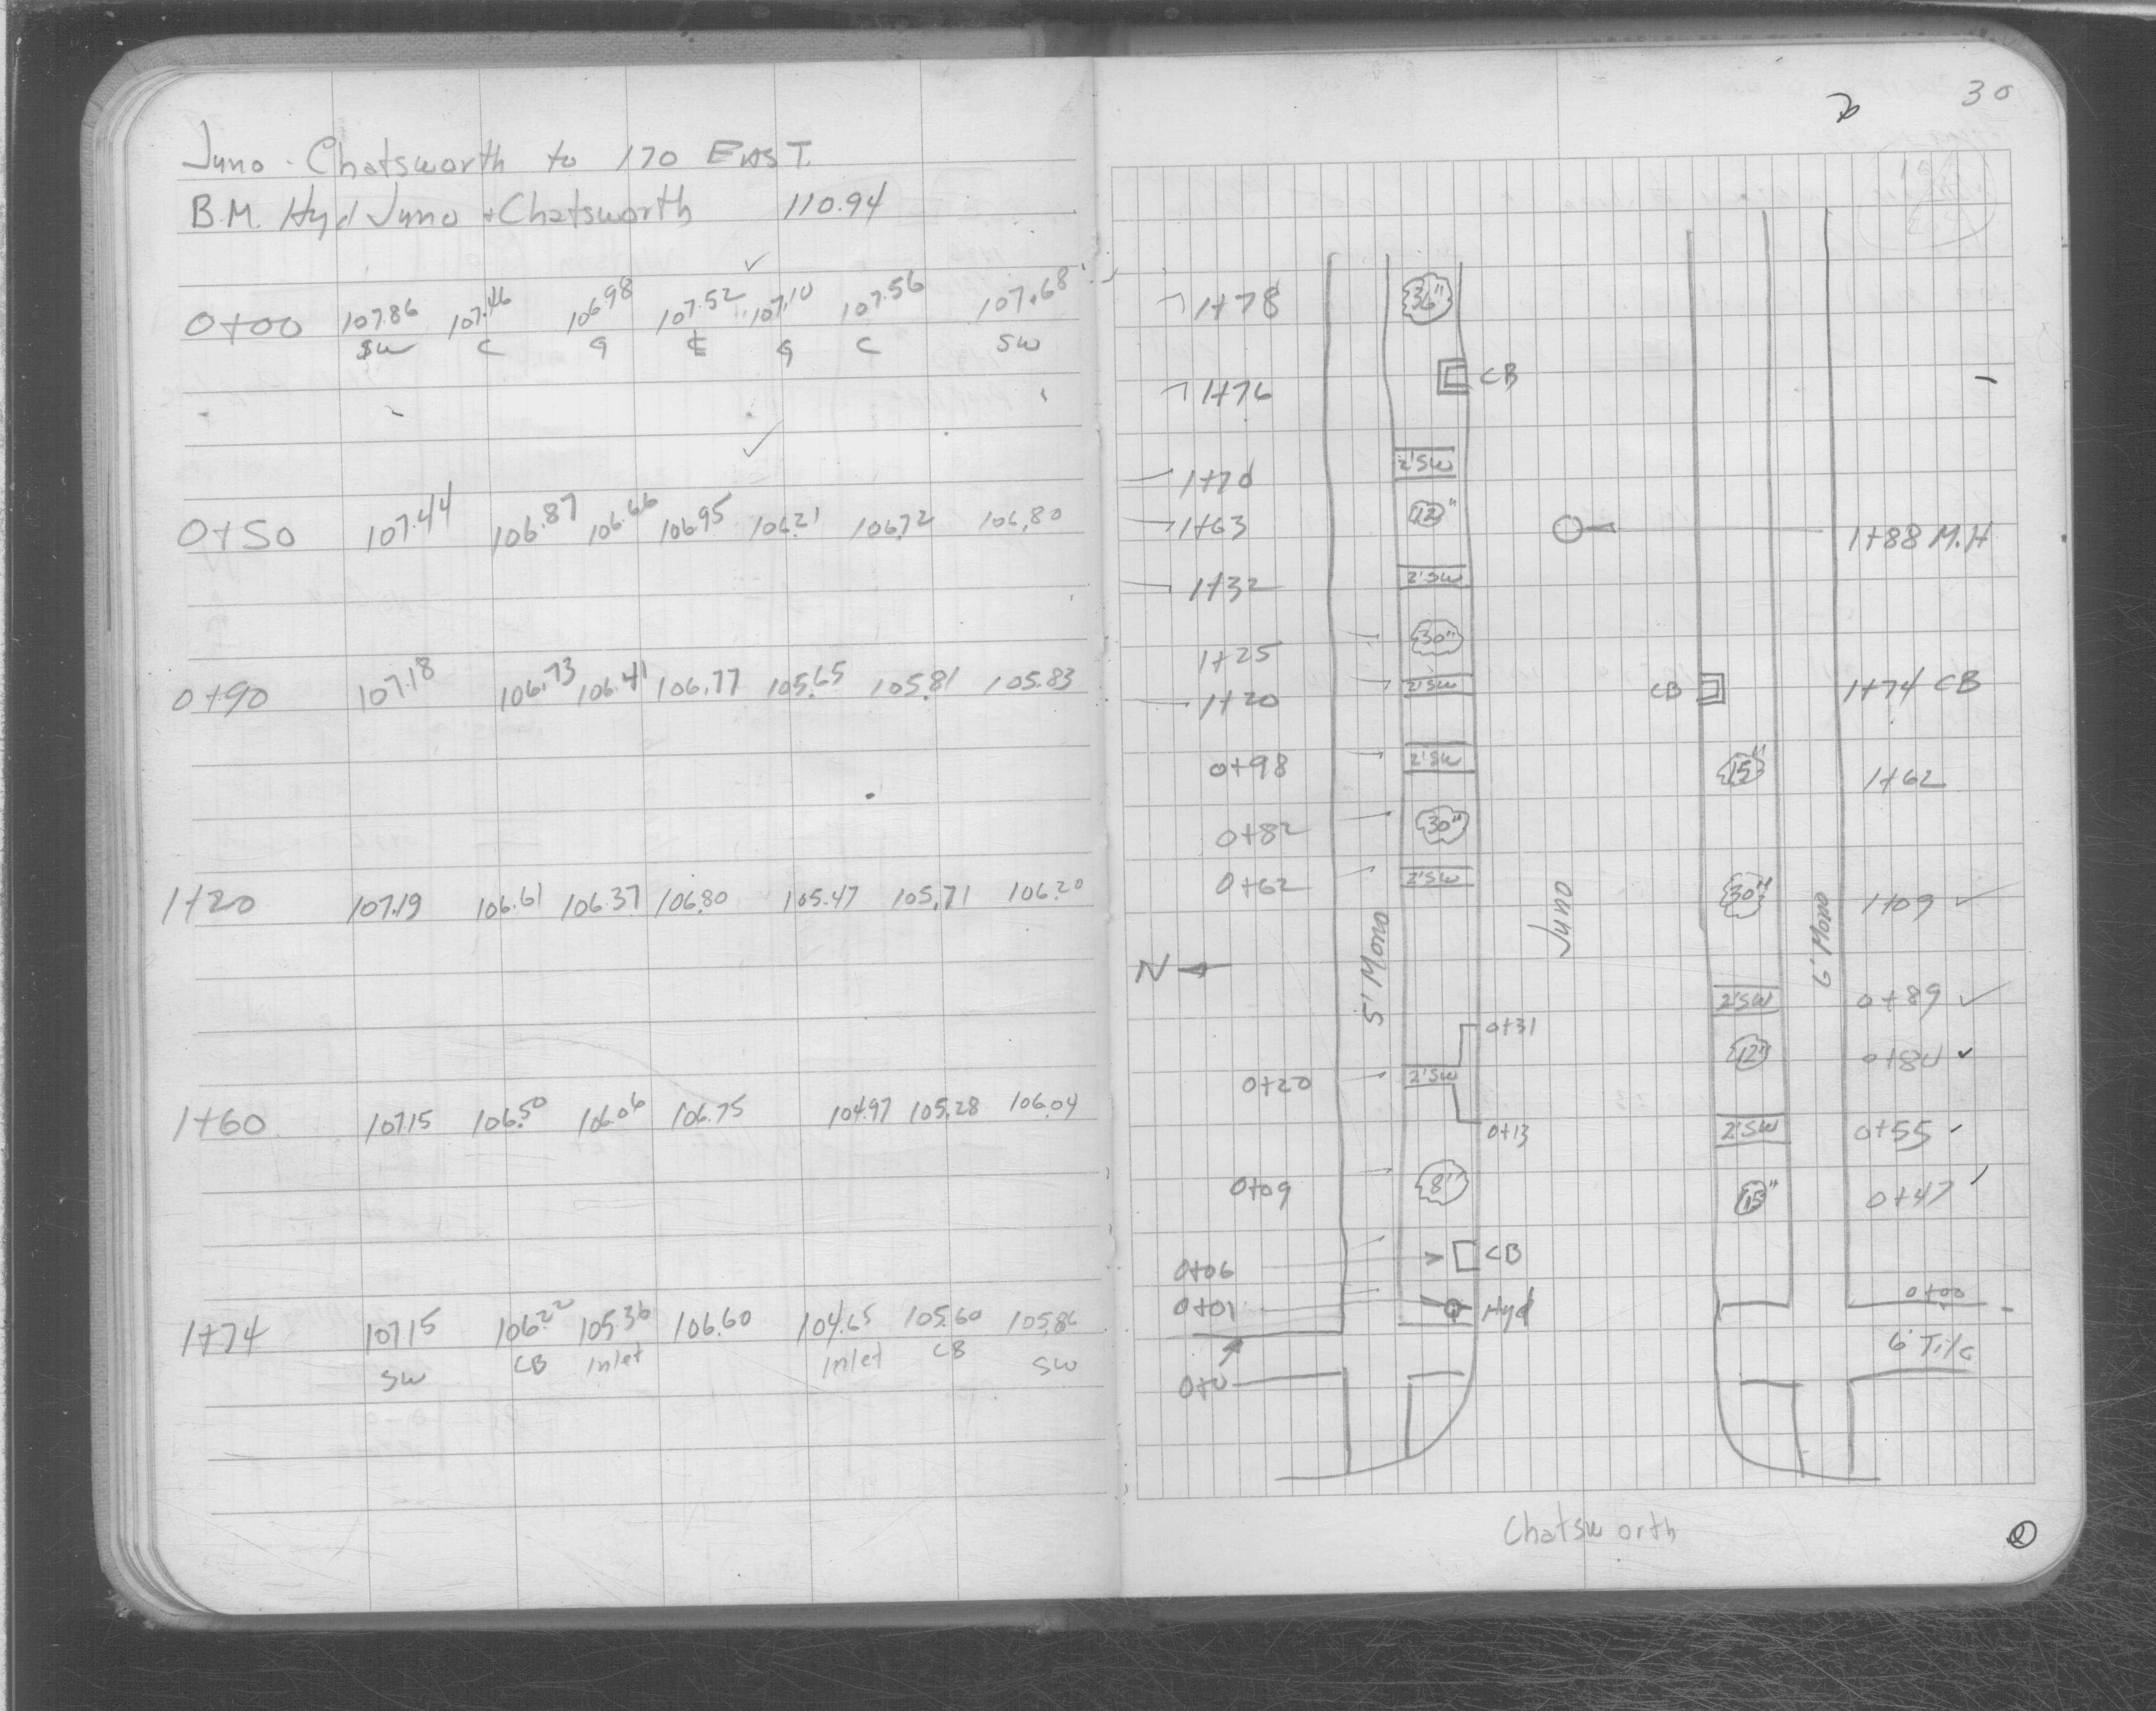 Juno - Chatsworth to 170 EAST.
B.M. Hyd Juno + Chatsworth 110.94
0+00 107.86 107.46 106.98 107.52 107.10 107.56 107.68
SW C G ℄ G C SW
0+50 107.44 106.87 106.66 106.95 106.21 106.72 106.80
0+90 107.18 106.73 106.41 106.77 105.65 105.81 105.83
1+20 107.19 106.61 106.37 106.80 105.47 105.71 106.20
1+60 107.15 106.50 106.06 106.75 104.97 105.28 106.04
1+74 107.15 106.22 105.36 106.60 104.65 105.60 105.86
SW CB Inlet Inlet CB SW
30
1+78 36"
1+76 CB
1+70 2'SW
1+63 12" 1+88 M.H
1+32 2'SW
1+25 30"
1+20 2'SW CB 1+74 CB
0+98 2'SW 15" 1+62
0+82 30"
0+62 2'SW 30" 1+09
5' Mono Juno 6' Mono
N
2'SW 0+89
0+31
12" 0+80
0+20 2'SW
0+13 2'SW 0+55
0+09 8" 15" 0+47
0+06 CB
0+01 Hyd 0+00
6' Tile
0+0
Chatsworth